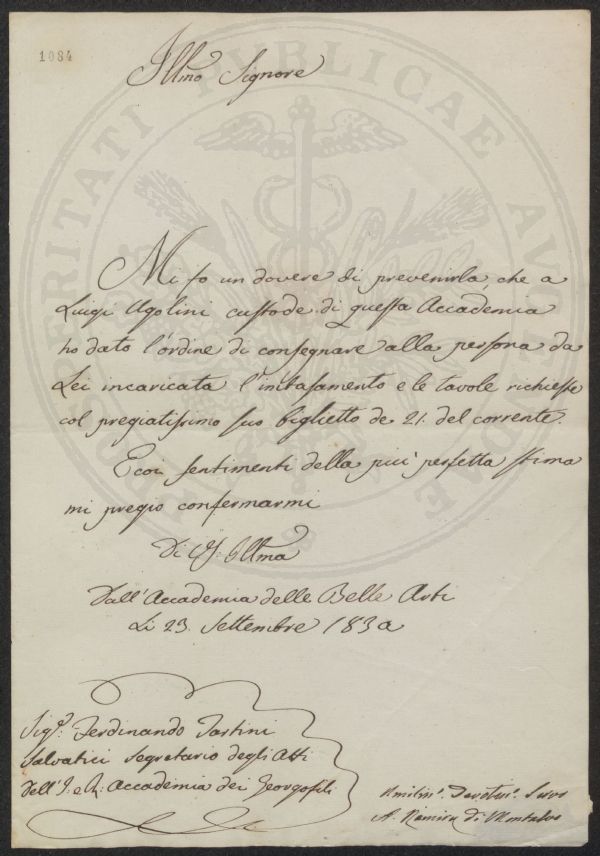 1084
Illmo Signore
Mi fo un dovere di prevenirla, che a
Luigi Ugolini custode di questa Accademia
ho dato l'ordine di consegnare alla persona da
Lei incaricata l'imbasamento e le tavole richieste
col pregiatissimo suo biglietto de 21. del corrente.
E coi sentimenti della più perfetta stima
mi pregio confermarmi
Di V. S. Illma
Dall'Accademia delle Belle Arti
Li 23. Settembre 1832
Sigr. Ferdinando Tartini
Salvatici Segretario degli Atti
Dell'I. e R. Accademia dei Georgofili
Umilmo. Devotmo. Servo
A. Ramirez Di Montalvo
PROSPERITATI PUBLICAE AUGENDAE